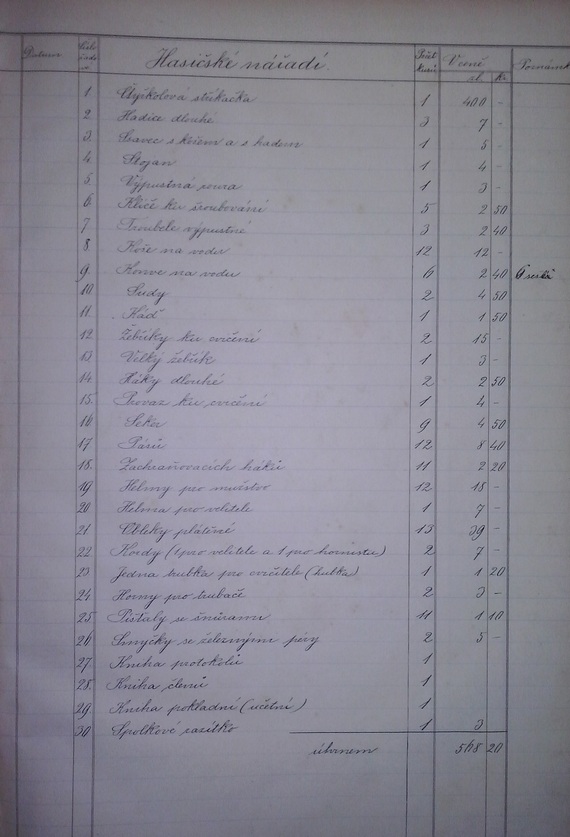 Datum Číslo Hasičské nářadí. Počet kusů V ceně Poznámka
zl. kr.
1. Čtyřkolová stříkačka 1 400 -
2. Hadice dlouhé 3 7 -
3. Ssavec s košem a s hadem 1 5 -
4. Stojan 1 4 -
5. Výpustná roura 1 3 -
6. Klíče ku šroubování 5 2 50
7. Troubele výpustné 3 2 40
8. Koše na vodu 12 12 -
9. Konve na vodu 6 2 40
10. Sudy 2 4 50
11. Káď 1 1 50
12. Žebříky ku cvičení 2 15 -
13. Velký žebřík 1 3 -
14. Háky dlouhé 2 2 50
15. Provaz ku cvičení 1 4 -
16. Seker 9 4 50
17. Pásů 12 8 40
18. Zachraňovacích háků 11 2 20
19. Helmy pro mužstvo 12 18 -
20. Helma pro velitele 1 7 -
21. Obleky plátěné 13 39 -
22. Kordy (1 pro velitele a 1 pro hornistu) 2 7 -
23. Jedna trubka pro cvičitele (trubka) 1 1 20
24. Horny pro trubače 2 3 -
25. Píšťaly se šnůrami 11 1 10
26. Smyčky se železnými péry 2 5 -
27. Kniha protokolů 1
28. Kniha členů 1
29. Kniha pokladní (účetní) 1
30. Spolkové razítko 1 3
úhrnem 568 20